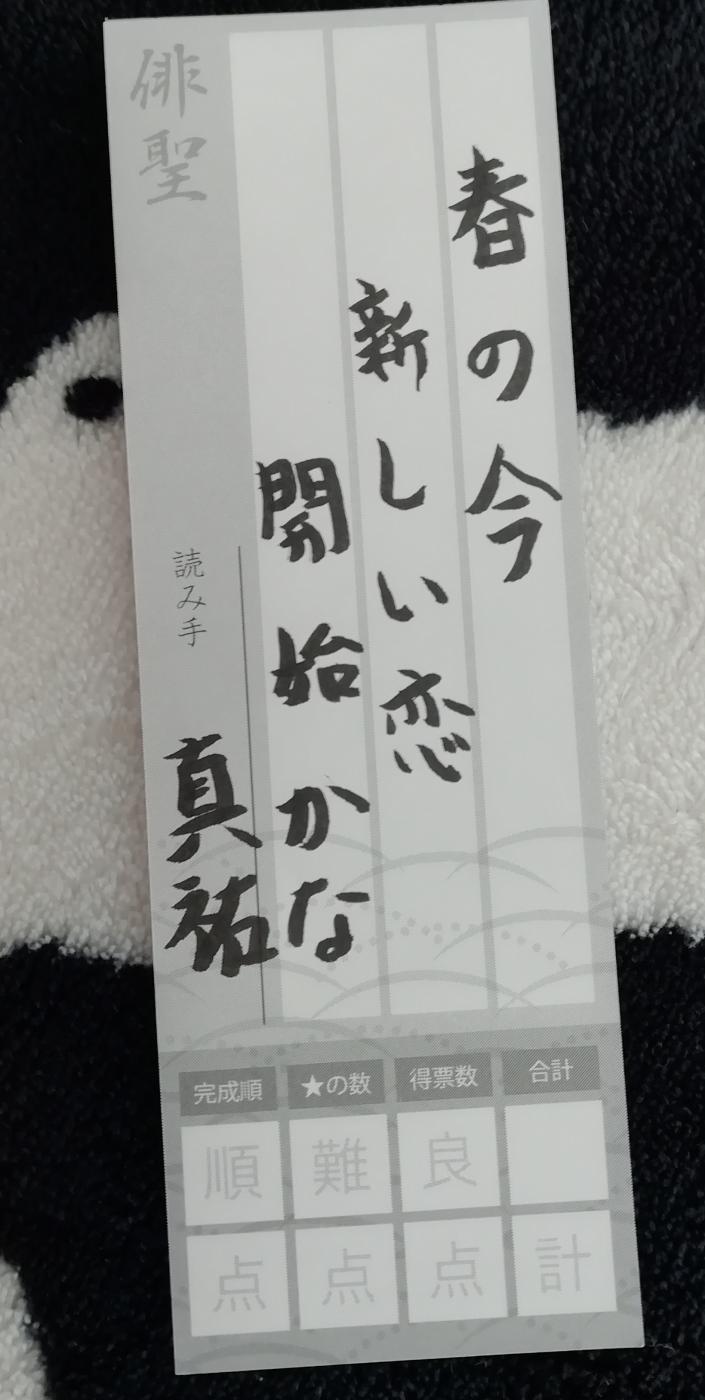 春の今
新しい恋
開始かな
俳聖
読み手
真祐
完成順
★の数
得票数
合計
順
難
良
点
点
点
計